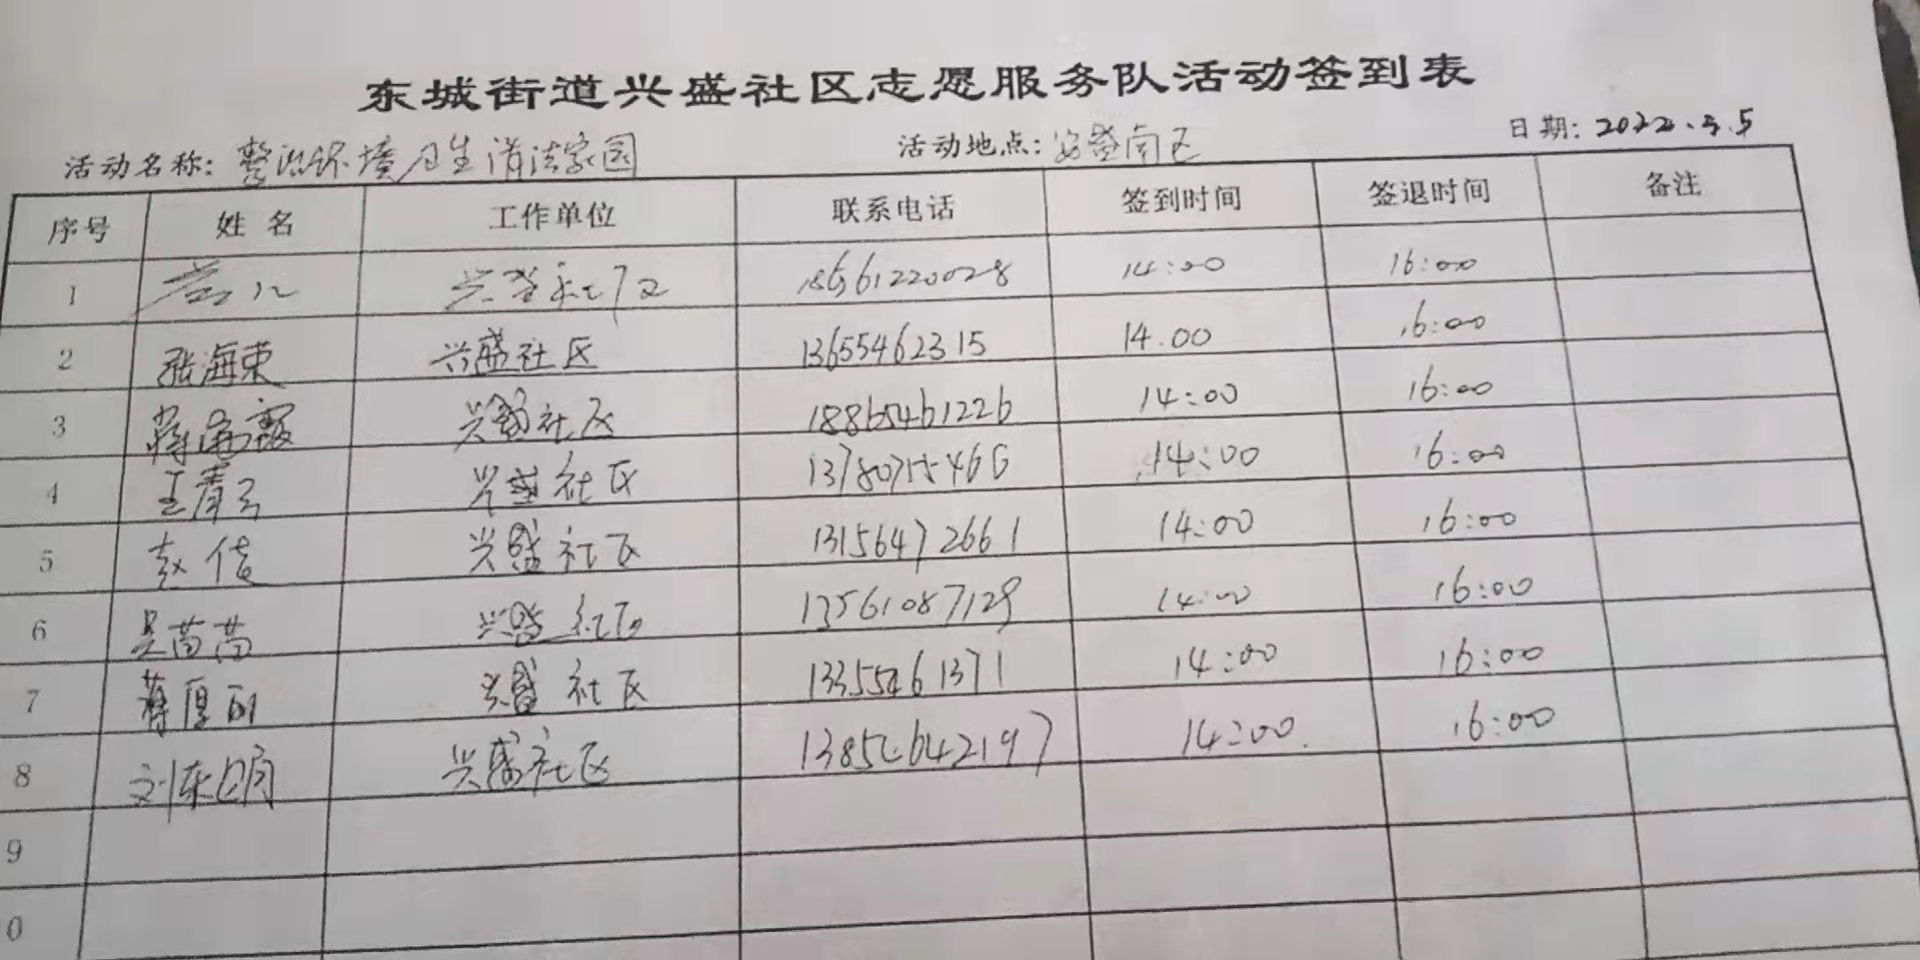 东城街道兴盛社区志愿服务队活动签到表
活动名称: 整治环境卫生 清洁家园 活动地点: 安盛南区 日期: 2022.3.5
序号 姓名 工作单位 联系电话 签到时间 签退时间 备注
1 兴盛社区 18561220028 14:00 16:00
2 张海东 兴盛社区 13655462315 14.00 16:00
3 蒋海霞 兴盛社区 18865461226 14:00 16:00
4 王青云 兴盛社区 14:00 16:00
5 赵倩 兴盛社区 13156472661 14:00 16:00
6 吴苗苗 兴盛社区 13561087129 14:00 16:00
7 兴盛社区 13355461371 14:00 16:00
8 兴盛社区 14:00 16:00
9
0